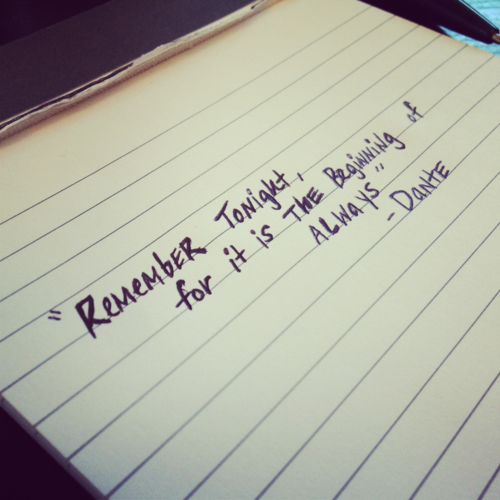 "Remember Tonight,
for it is The Beginning of
ALways"
- DANTE